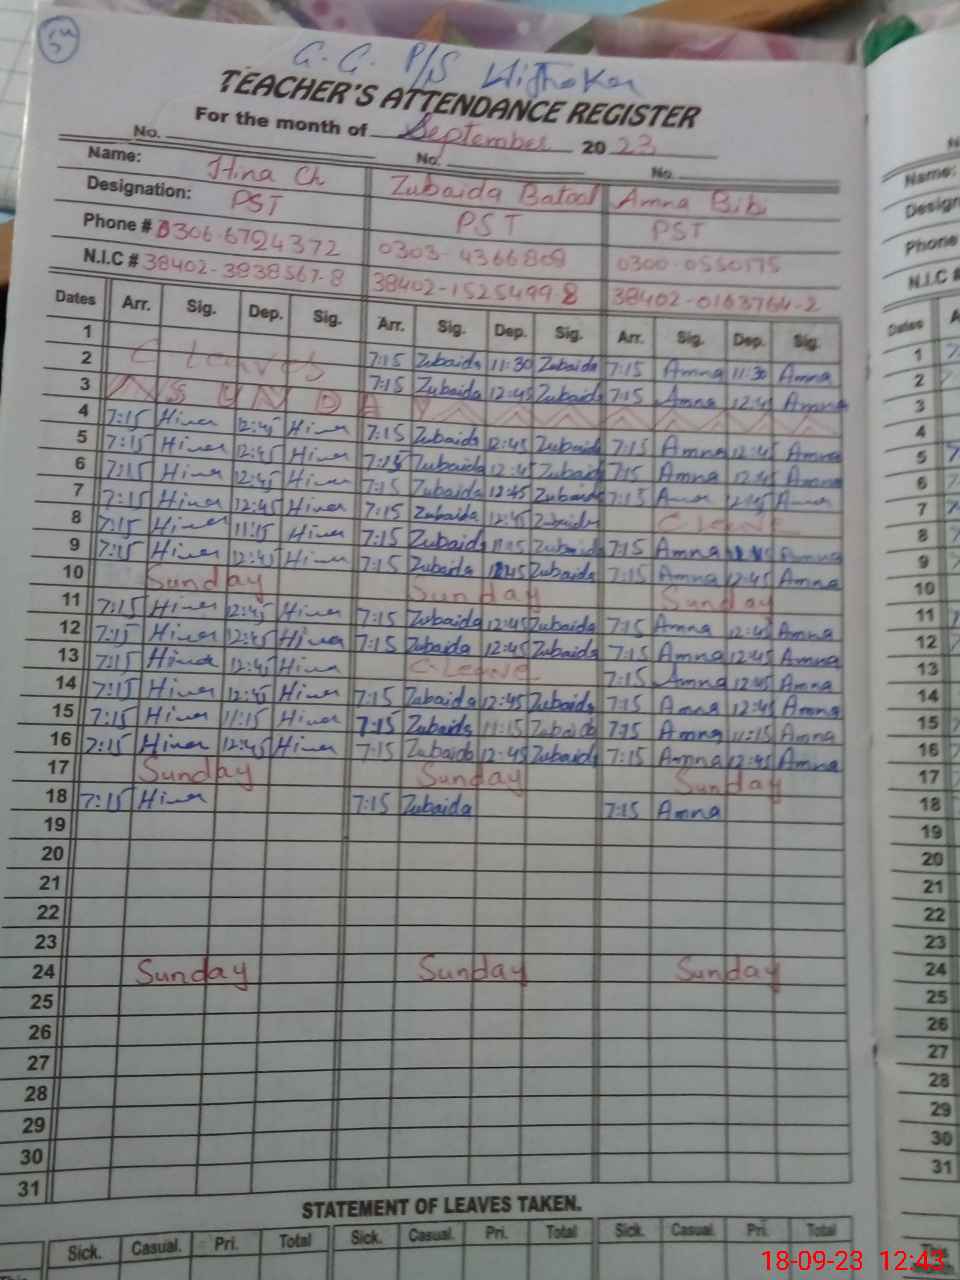 G. G. P/S
TEACHER'S ATTENDANCE REGISTER
For the month of September 2023
No. No. No.
Name: Hina Ch Zubaida Batool Amna Bibi
Designation: PST PST PST
Phone # 0306-6794372 0303-4366809 0300-0550175
N.I.C # 38402-3838567-8 38402-1525499-8 38402-0163764-2
Dates Arr. Sig. Dep. Sig. Arr. Sig. Dep. Sig. Arr. Sig. Dep. Sig.
1 C Leaves 7:15 Zubaida 11:30 Zubaida 7:15 Amna 11:30 Amna
2 7:15 Zubaida 12:45 Zubaida 7:15 Amna 12:45 Amna
3 SUNDAY
4 7:15 Hina 12:45 Hina 7:15 Zubaida 12:45 Zubaida 7:15 Amna 12:45 Amna
5 7:15 Hina 12:45 Hina 7:15 Zubaida 12:45 Zubaida 7:15 Amna 12:45 Amna
6 7:15 Hina 12:45 Hina 7:15 Zubaida 12:45 Zubaida 7:15 Amna 12:45 Amna
7 7:15 Hina 12:45 Hina 7:15 Zubaida 12:45 Zubaida C Leave
8 7:15 Hina 11:15 Hina 7:15 Zubaida 11:15 Zubaida 7:15 Amna Amna
9 7:15 Hina 12:45 Hina 7:15 Zubaida 12:45 Zubaida 7:15 Amna 12:45 Amna
10 Sunday Sunday Sunday
11 7:15 Hina 12:45 Hina 7:15 Zubaida 12:45 Zubaida 7:15 Amna 12:45 Amna
12 7:15 Hina 12:45 Hina 7:15 Zubaida 12:45 Zubaida 7:15 Amna 12:45 Amna
13 7:15 Hina 12:45 Hina C-Leave 7:15 Amna 12:45 Amna
14 7:15 Hina 12:45 Hina 7:15 Zubaida 12:45 Zubaida 7:15 Amna 12:45 Amna
15 7:15 Hina 11:15 Hina 7:15 Zubaida 11:15 Zubaida 7:15 Amna 11:15 Amna
16 7:15 Hina 12:45 Hina 7:15 Zubaida 12:45 Zubaida 7:15 Amna 12:45 Amna
17 Sunday Sunday Sunday
18 7:15 Hina 7:15 Zubaida 7:15 Amna
19
20
21
22
23
24 Sunday Sunday Sunday
25
26
27
28
29
30
31
STATEMENT OF LEAVES TAKEN.
Sick. Casual. Pri. Total Sick. Casual. Pri. Total Sick. Casual. Pri. Total
This
Name:
Phone
N.I.C #
Dates
1
2
3
4
5
6
7
8
9
10
11
12
13
14
15
16
17
18
19
20
21
22
23
24
25
26
27
28
29
30
31
This
18-09-23 12:43